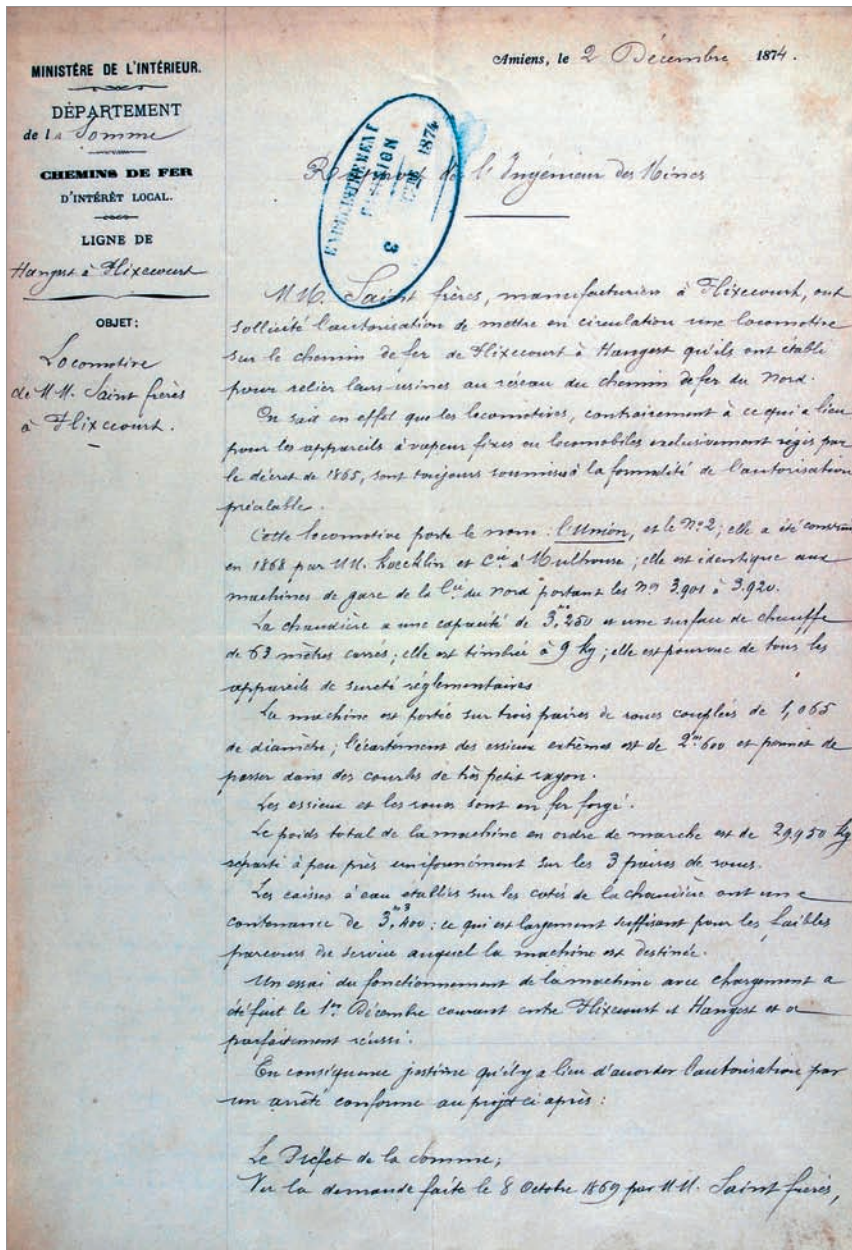 MINISTÈRE DE L'INTÉRIEUR.
DÉPARTEMENT
de la Somme
CHEMINS DE FER
D'INTÉRÊT LOCAL.
LIGNE DE
Hangest à Flixecourt
OBJET:
Locomotive
de MM. Saint frères
à Flixecourt.
Amiens, le 2 Décembre 1874.
ENREGISTREMENT
DIVISION
3
DÉC 1874
Rapport de l'Ingénieur des Mines
MM. Saint frères, manufacturiers à Flixecourt, ont
sollicité l'autorisation de mettre en circulation une locomotive
sur le chemin de fer de Flixecourt à Hangest qu'ils ont établi
pour relier leurs usines au réseau du chemin de fer du Nord.
On sait en effet que les locomotives, contrairement à ce qui a lieu
pour les appareils à vapeur fixes ou locomobiles exclusivement régis par
le décret de 1865, sont toujours soumises à la formalité de l'autorisation
préalable.
Cette locomotive porte le nom : l'Union, et le Nº 2; elle a été construite
en 1868 par MM. Koechlin et Cie à Mulhouse; elle est identique aux
machines de gare de la Cie du Nord portant les Nos 3.901 à 3.920.
La chaudière a une capacité de 3,m250 et une surface de chauffe
de 63 mètres carrés; elle est timbrée à 9 kg; elle est pourvue de tous les
appareils de sureté réglementaires
La machine est portée sur trois paires de roues couplées de 1,065
de diamètre; l'écartement des essieux extrêmes est de 2m600 et permet de
passer dans des courbes de très petit rayon.
Les essieux et les roues sont en fer forgé.
Le poids total de la machine en ordre de marche est de 29,950 kg
réparti à peu près uniformément sur les 3 paires de roues.
Les caisses à eau établies sur les cotés de la chaudière ont une
contenance de 3,m3400; ce qui est largement suffisant pour les faibles
parcours du service auquel la machine est destinée.
Un essai du fonctionnement de la machine avec chargement a
été fait le 1er Décembre courant entre Flixecourt et Hangest et a
parfaitement réussi.
En conséquence j'estime qu'il y a lieu d'accorder l'autorisation par
un arrêté conforme au projet ci après :
Le Préfet de la Somme;
Vu la demande faite le 8 Octobre 1869 par MM. Saint frères,